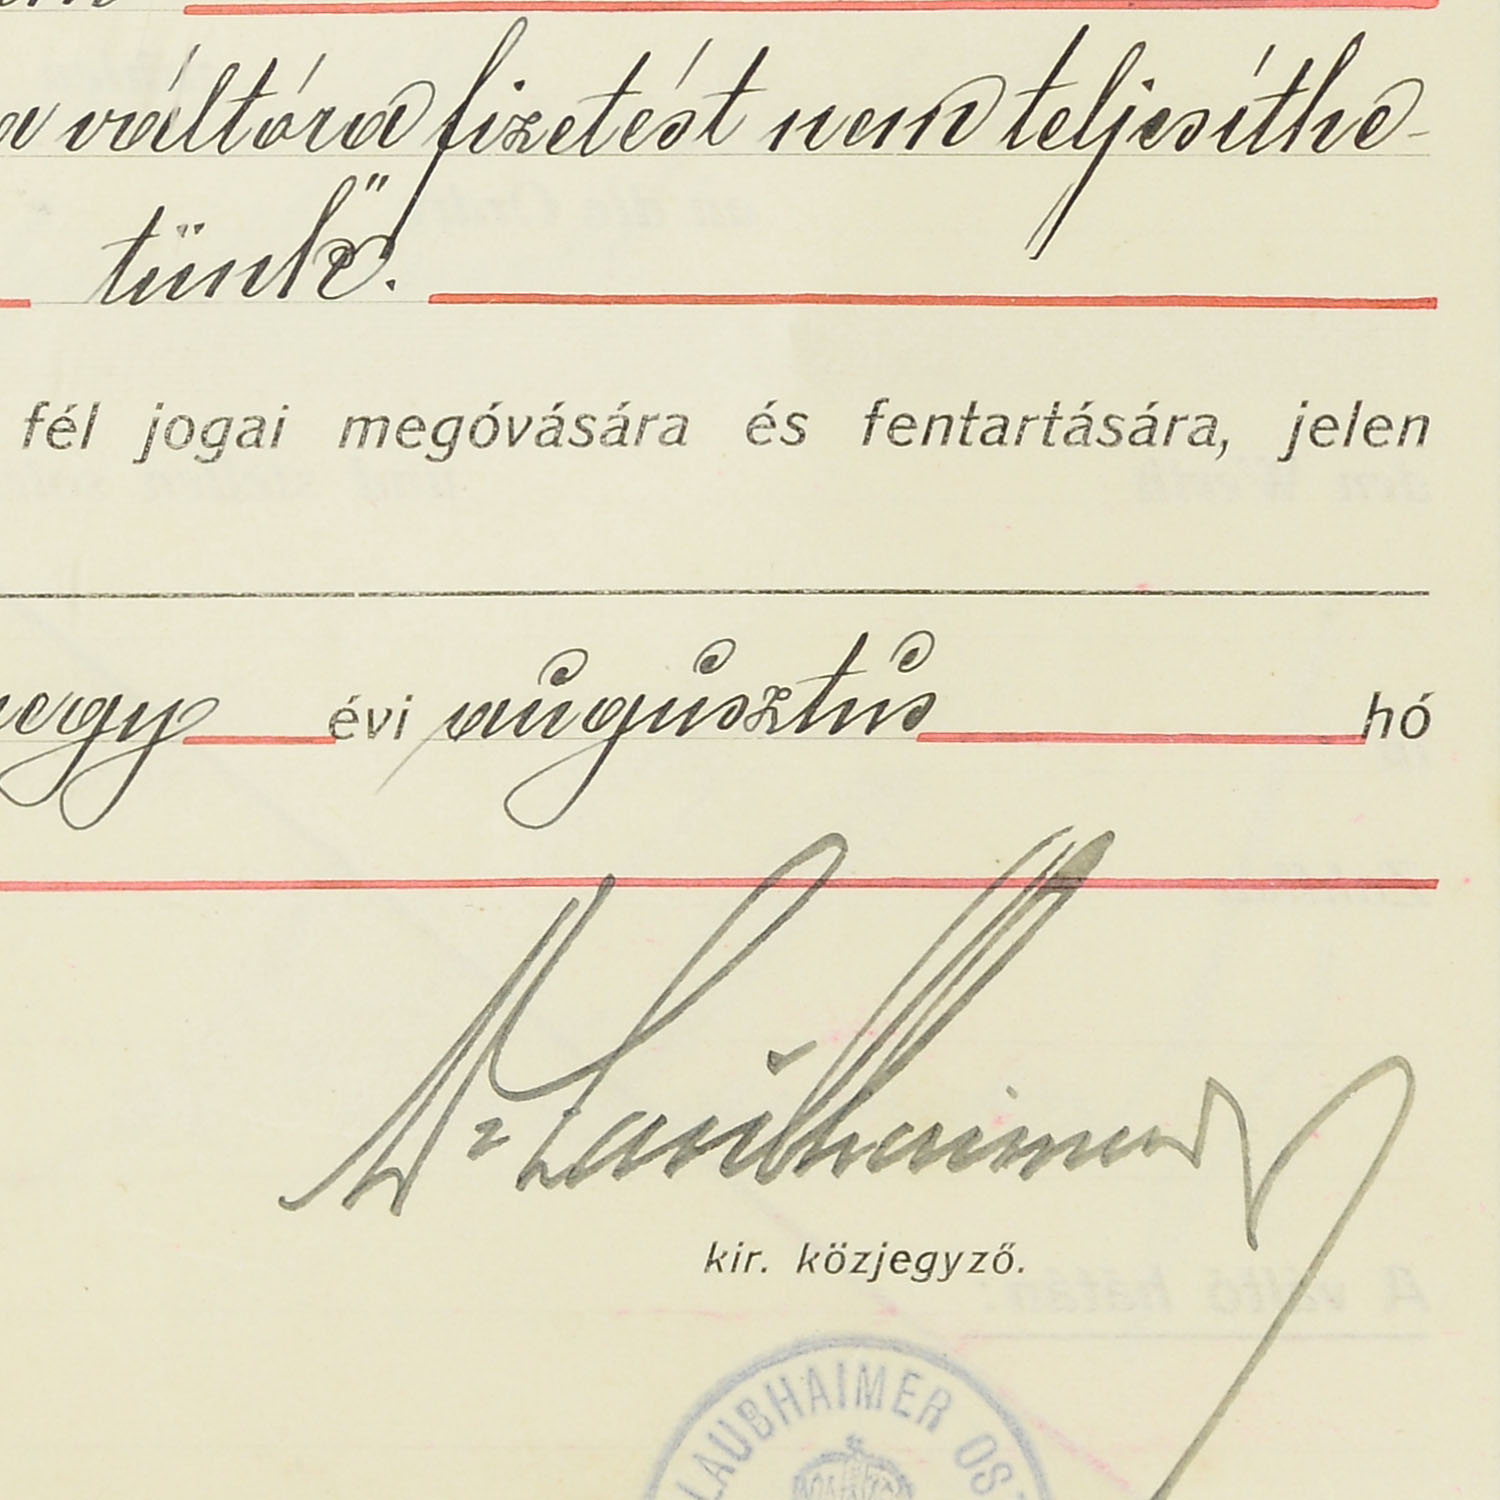 a váltóra fizetést nem teljesíthe-
tünk".
fél jogai megóvására és fentartására, jelen
évi augusztus hó
Dr Laubhaimer
kir. közjegyző.
LAUBHAIMER